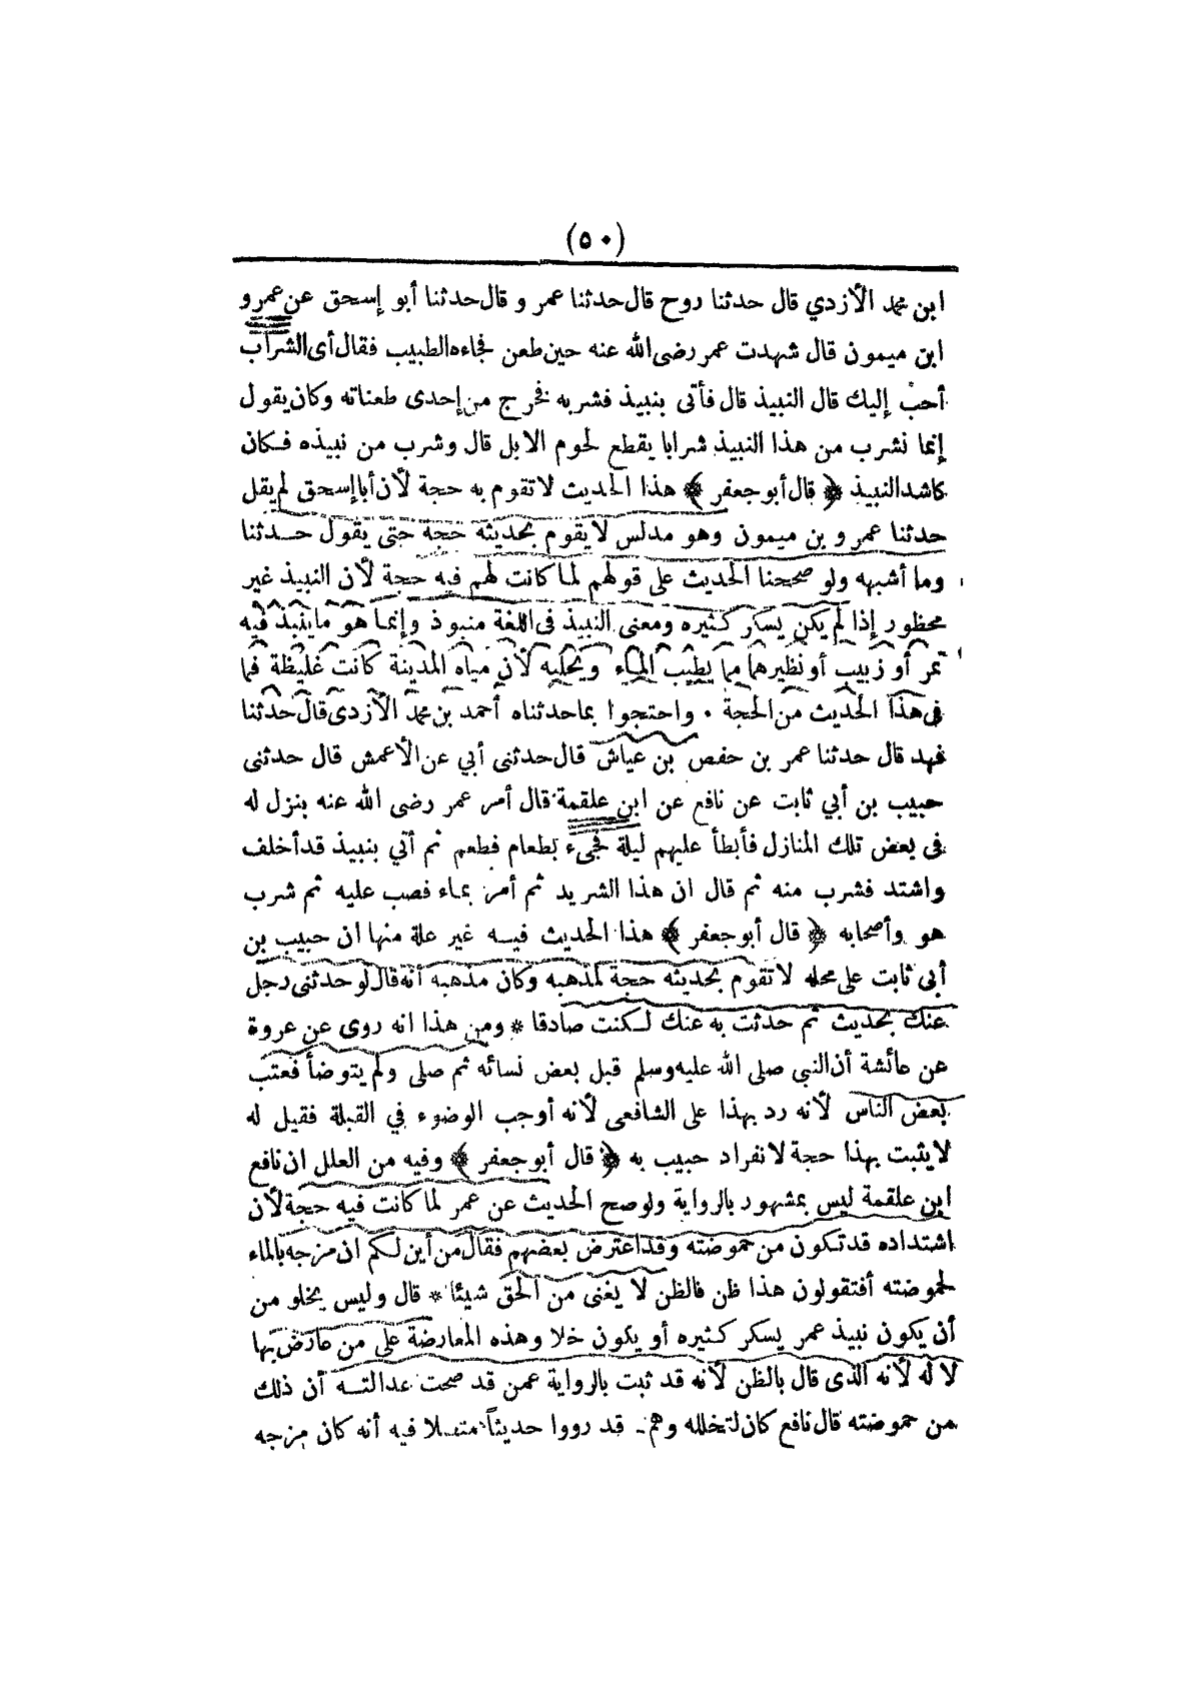 (٥٠)
ابن محمد الأزدي قال حدثنا روح قال حدثنا عمر و قال حدثنا أبو إسحق عن عمرو
ابن ميمون قال شهدت عمر رضى الله عنه حين طعن فجاءه الطبيب فقال أى الشراب
أحب إليك قال النبيذ قال فأتى بنبيذ فشربه فخرج من إحدى طعناته وكان يقول
إنما نشرب من هذا النبيذ شرابا يقطع لحوم الابل قال وشرب من نبيذه فكان
كاشد النبيذ ﴿ قال أبو جعفر ﴾ هذا الحديث لا تقوم به حجة لأن أبا إسحق لم يقل
حدثنا عمر و بن ميمون وهو مدلس لا يقوم بحديثه حجة حتى يقول حدثنا
وما أشبهه ولو صححنا الحديث على قولهم لما كانت لهم فيه حجة لأن النبيذ غير
محظور إذا لم يكن يسكر كثيره ومعنى النبيذ فى اللغة منبوذ وإنما هو ما ينبذ فيه
تمر أو زبيب أو نظيرهما مما يطيب الماء ويحليه لأن مياه المدينة كانت غليظة فما
فى هذا الحديث من الحجة . واحتجوا بما حدثناه أحمد بن محمد الأزدى قال حدثنا
فهد قال حدثنا عمر بن حفص بن عياش قال حدثنى أبي عن الأعمش قال حدثنى
حبيب بن أبي ثابت عن نافع عن ابن علقمة قال أمر عمر رضى الله عنه بنزل له
فى بعض تلك المنازل فأبطأ عليهم ليلة فجىء بطعام فطعم ثم أتي بنبيذ قد أخلف
واشتد فشرب منه ثم قال ان هذا الشريد ثم أمر بماء فصب عليه ثم شرب
هو وأصحابه ﴿ قال أبو جعفر ﴾ هذا الحديث فيه غير علة منها ان حبيب بن
أبى ثابت على محله لا تقوم بحديثه حجة لمذهبه وكان مذهبه أنه قال لو حدثنى رجل
عنك بحديث ثم حدثت به عنك لكنت صادقا * ومن هذا انه روى عن عروة
عن عائشة أن النبى صلى الله عليه وسلم قبل بعض نسائه ثم صلى ولم يتوضأ فعتب
بعض الناس لأنه رد بهذا على الشافعى لأنه أوجب الوضوء في القبلة فقيل له
لا يثبت بهذا حجة لانفراد حبيب به ﴿ قال أبو جعفر ﴾ وفيه من العلل ان نافع
ابن علقمة ليس بمشهور بالرواية ولو صح الحديث عن عمر لما كانت فيه حجة لأن
اشتداده قد تكون من حموضته وقد اعترض بعضهم فقال من أين لكم ان مزجه بالماء
لحموضته أفتقولون هذا ظن فالظن لا يغنى من الحق شيئا * قال وليس يخلو من
أن يكون نبيذ عمر يسكر كثيره أو يكون خلا وهذه المعارضة على من عارض بها
لا له لأنه الذى قال بالظن لأنه قد ثبت بالرواية عمن قد صحت عدالته أن ذلك
من حموضته قال نافع كان لتخلله وهم قد رووا حديثاً متصلا فيه أنه كان مزجه